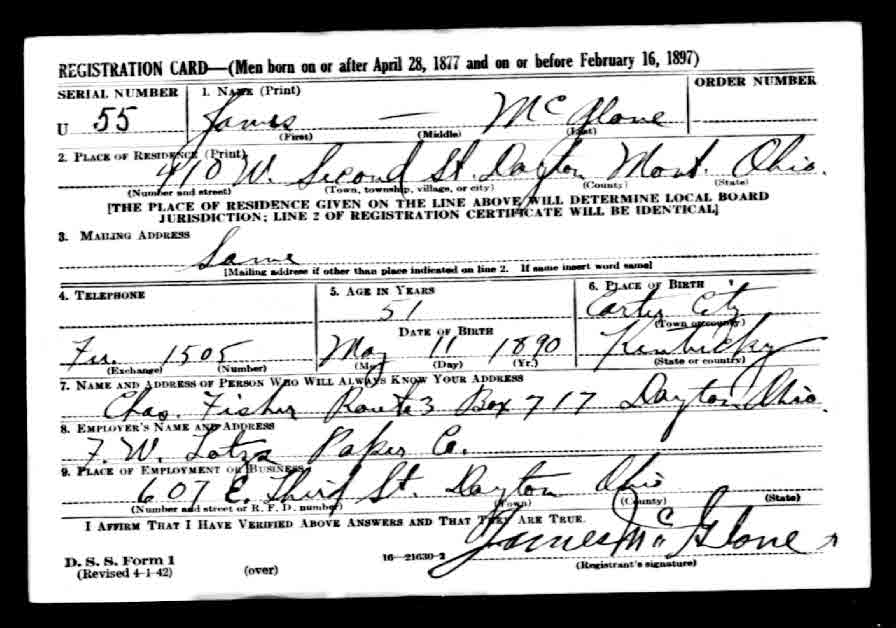 REGISTRATION CARD—(Men born on or after April 28, 1877 and on or before February 16, 1897)
SERIAL NUMBER 1. NAME (Print) ORDER NUMBER
U 55 James — McGlone
(First) (Middle) (Last)
2. PLACE OF RESIDENCE (Print)
410 W. Second St. Dayton Mont. Ohio.
(Number and street) (Town, township, village, or city) (County) (State)
[THE PLACE OF RESIDENCE GIVEN ON THE LINE ABOVE WILL DETERMINE LOCAL BOARD
JURISDICTION; LINE 2 OF REGISTRATION CERTIFICATE WILL BE IDENTICAL]
3. MAILING ADDRESS
Same
[Mailing address if other than place indicated on line 2. If same insert word same]
4. TELEPHONE 5. AGE IN YEARS 6. PLACE OF BIRTH
51 Carter City
DATE OF BIRTH (Town or county)
Fu. 1505 May 11 1890 Kentucky
(Exchange) (Number) (Mo.) (Day) (Yr.) (State or country)
7. NAME AND ADDRESS OF PERSON WHO WILL ALWAYS KNOW YOUR ADDRESS
Chas. Fisher Route 3 Box 717 Dayton, Ohio.
8. EMPLOYER'S NAME AND ADDRESS
F. W. Paper Co.
9. PLACE OF EMPLOYMENT OR BUSINESS
607 E. Third St. Dayton Ohio
(Number and street or R. F. D. number) (Town) (County) (State)
I AFFIRM THAT I HAVE VERIFIED ABOVE ANSWERS AND THAT THEY ARE TRUE.
James McGlone
D. S. S. Form 1
(Revised 4-1-42) (over) 16—21630-2 (Registrant's signature)